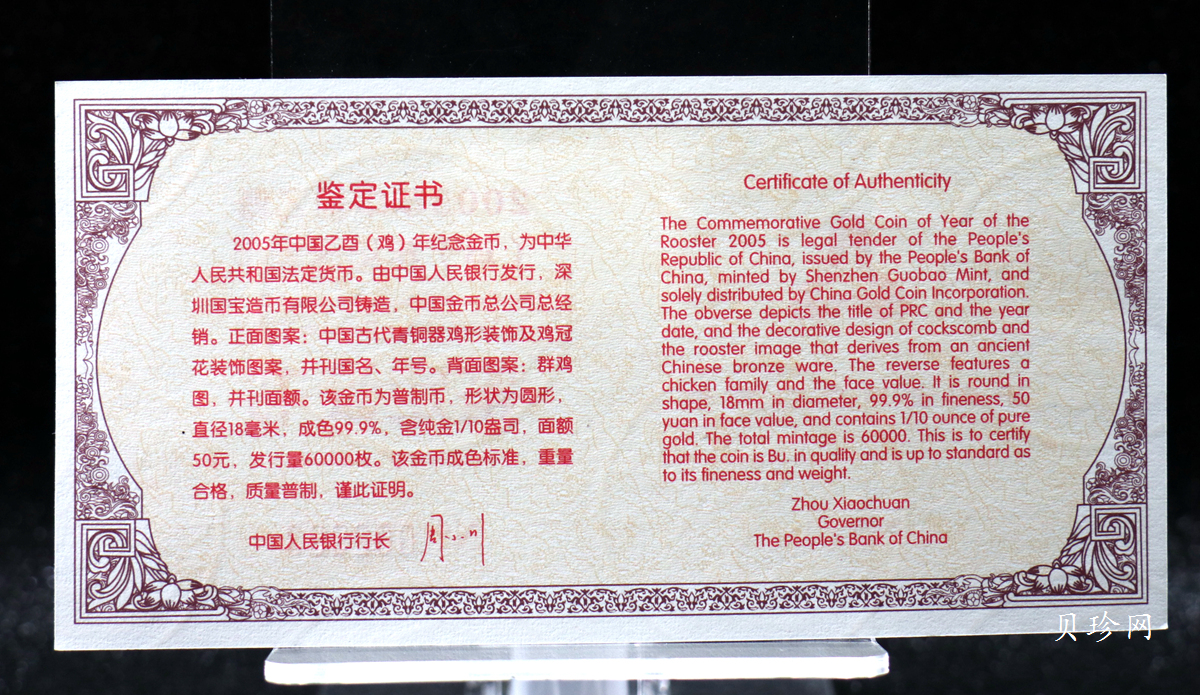 鉴定证书
2005年中国乙酉（鸡）年纪念金币，为中华
人民共和国法定货币。由中国人民银行发行，深
圳国宝造币有限公司铸造，中国金币总公司总经
销。正面图案：中国古代青铜器鸡形装饰及鸡冠
花装饰图案，并刊国名、年号。背面图案：群鸡
图，并刊面额。该金币为普制币，形状为圆形，
直径18毫米，成色99.9%，含纯金1/10盎司，面额
50元，发行量60000枚。该金币成色标准，重量
合格，质量普制，谨此证明。
中国人民银行行长
周小川
Certificate of Authenticity
The Commemorative Gold Coin of Year of the
Rooster 2005 is legal tender of the People's
Republic of China, issued by the People's Bank of
China, minted by Shenzhen Guobao Mint, and
solely distributed by China Gold Coin Incorporation.
The obverse depicts the title of PRC and the year
date, and the decorative design of cockscomb and
the rooster image that derives from an ancient
Chinese bronze ware. The reverse features a
chicken family and the face value. It is round in
shape, 18mm in diameter, 99.9% in fineness, 50
yuan in face value, and contains 1/10 ounce of pure
gold. The total mintage is 60000. This is to certify
that the coin is Bu. in quality and is up to standard as
to its fineness and weight.
Zhou Xiaochuan
Governor
The People's Bank of China
贝珍网